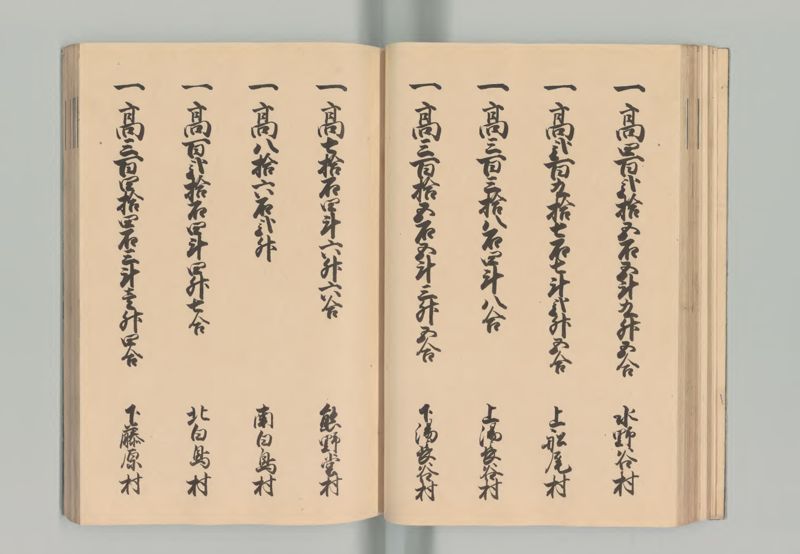 一高四百弐拾五石五斗九升五合 水野谷村
一高弐百九拾七石七斗弐升五合 上船尾村
一高三百三拾八石四斗八合 上湯長谷村
一高三百拾五石五斗三升五合 下湯長谷村
一高七拾石四斗六升六合 熊野堂村
一高八拾六石弐升 南白鳥村
一高百弐拾石四斗四升七合 北白鳥村
一高三百四拾四石三斗壱升四合 下藤原村